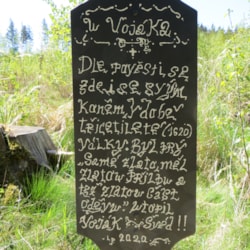 U Vojáka
Dle pověsti, se
zde i se svým
koněm, v době
třicetileté (1620)
války: Byl prý
"Samé zlato, měl
zlatou přilbu a
též zlatou část
oděvu." utopil
Voják Švéd!!
L.p. 2020.